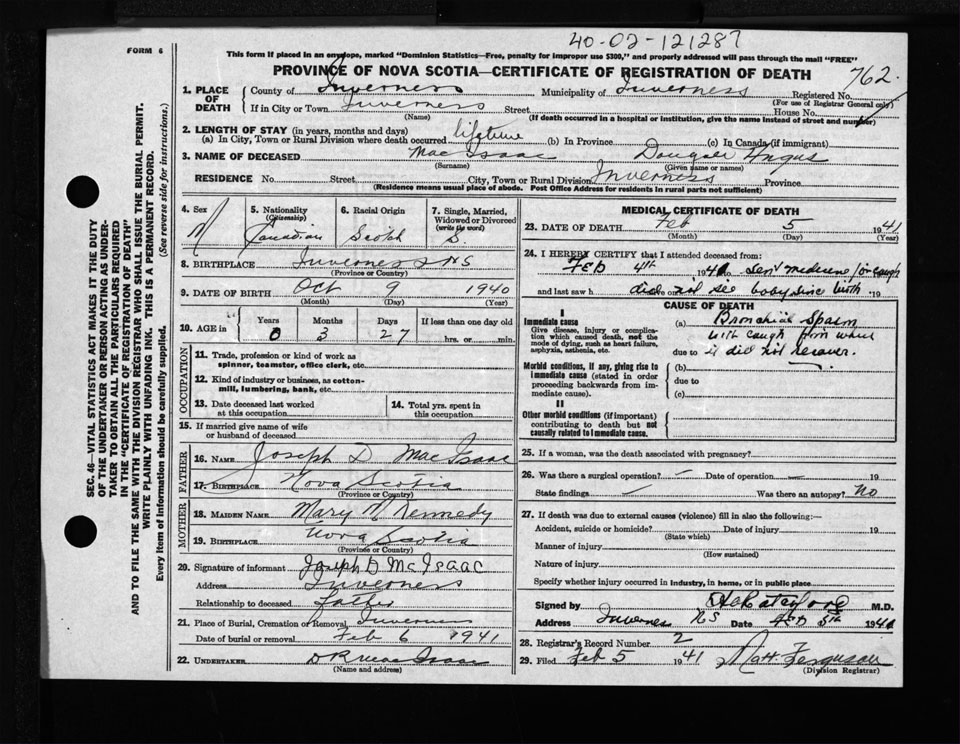 40-02-121287
FORM 6
This form if placed in an envelope, marked "Dominion Statistics—Free, penalty for improper use $300," and properly addressed will pass through the mail "FREE"
PROVINCE OF NOVA SCOTIA—CERTIFICATE OF REGISTRATION OF DEATH
762
1. PLACE OF DEATH
County of Inverness Municipality of Inverness Registered No.
(For use of Registrar General only)
If in City or Town Inverness Street House No.
(Name) (If death occurred in a hospital or institution, give the name instead of street and number)
2. LENGTH OF STAY (in years, months and days)
(a) In City, Town or Rural Division where death occurred lifetime (b) In Province (c) In Canada (if immigrant)
3. NAME OF DECEASED Mac Isaac Dougall Angus
(Surname) (Given name or names)
RESIDENCE No. Street City, Town or Rural Division Inverness Province
(Residence means usual place of abode. Post Office Address for residents in rural parts not sufficient)
SEC. 46—VITAL STATISTICS ACT MAKES IT THE DUTY
OF THE UNDERTAKER OR PERSON ACTING AS UNDER-
TAKER TO OBTAIN ALL THE PARTICULARS REQUIRED
IN THE "CERTIFICATE OF REGISTRATION OF DEATH"
AND TO FILE THE SAME WITH THE DIVISION REGISTRAR WHO SHALL ISSUE THE BURIAL PERMIT.
WRITE PLAINLY WITH UNFADING INK. THIS IS A PERMANENT RECORD.
Every item of information should be carefully supplied. (See reverse side for instructions.)
4. Sex M
5. Nationality (Citizenship) Canadian
6. Racial Origin Scotch
7. Single, Married, Widowed or Divorced (write the word) S.
8. BIRTHPLACE Inverness NS
(Province or Country)
9. DATE OF BIRTH Oct 9 1940
(Month) (Day) (Year)
10. AGE in Years Months Days If less than one day old
0 3 27 hrs. or min.
OCCUPATION
11. Trade, profession or kind of work as
spinner, teamster, office clerk, etc.
12. Kind of industry or business, as cotton-
mill, lumbering, bank, etc.
13. Date deceased last worked
at this occupation
14. Total yrs. spent in
this occupation
15. If married give name of wife
or husband of deceased
FATHER
16. NAME Joseph D Mac Isaac
17. BIRTHPLACE Nova Scotia
(Province or Country)
MOTHER
18. MAIDEN NAME Mary M Kennedy
19. BIRTHPLACE Nova Scotia
(Province or Country)
20. Signature of informant Joseph D McIsaac
Address Inverness
Relationship to deceased father
21. Place of Burial, Cremation or Removal Inverness
Date of burial or removal Feb 6 1941
22. UNDERTAKER D R MacIsaac
(Name and address)
MEDICAL CERTIFICATE OF DEATH
23. DATE OF DEATH Feb 5 1941
(Month) (Day) (Year)
24. I HEREBY CERTIFY that I attended deceased from:
Feb 4th 1941 sent medicine for cough
and last saw h did not see baby since birth 19
CAUSE OF DEATH
I
Immediate cause
Give disease, injury or complica-
tion which caused death, not the
mode of dying, such as heart failure,
asphyxia, asthenia, etc.
(a) Bronchial Spasm
with cough from where
due to it did not recover.
Morbid conditions, if any, giving rise to
immediate cause (stated in order
proceeding backwards from im-
mediate cause).
(b)
due to
(c)
II
Other morbid conditions (if important)
contributing to death but not
causally related to immediate cause.
25. If a woman, was the death associated with pregnancy?
26. Was there a surgical operation? — Date of operation — 19
State findings Was there an autopsy? No
27. If death was due to external causes (violence) fill in also the following:—
Accident, suicide or homicide? Date of injury 19
(State which)
Manner of injury
(How sustained)
Nature of injury
Specify whether injury occurred in industry, in home, or in public place
Signed by M.D.
Address Inverness NS Date Feb 5th 1941
28. Registrar's Record Number 2
29. Filed Feb 5 1941 Matt. Ferguson
(Division Registrar)